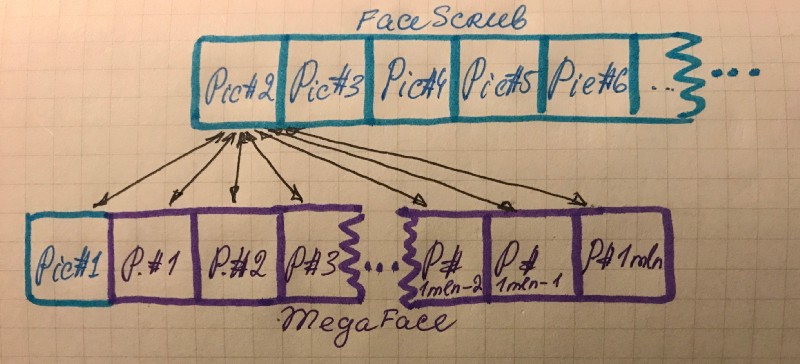 FaceScrub
Pic#2 Pic#3 Pic#4 Pic#5 Pic#6 ... ...
Pic#1 P.#1 P.#2 P#3 ... P# 1mln-2 P# 1mln-1 P#1mln
MegaFace